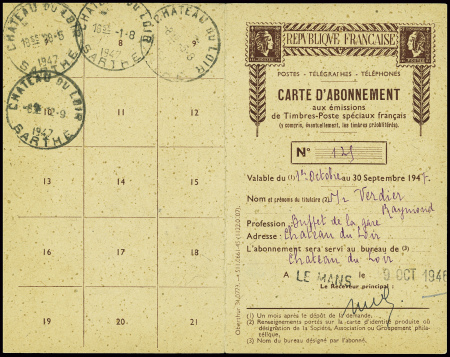 CHATEAU DU LOIR
SARTHE
1947
CHATEAU DU LOIR
-1-8
8
1947
SARTHE
CHATEAU DU LOIR
9
SARTHE
CHATEAU DU LOIR
1947
SARTHE
11
12
13
14
15
16
17
18
19
20
21
RÉPUBLIQUE FRANÇAISE
POSTES - TÉLÉGRAPHES - TÉLÉPHONES
CARTE D'ABONNEMENT
aux émissions
de Timbres-Poste spéciaux français
(y compris, éventuellement, les timbres préoblitérés).
N° 125
Valable du (1) 1er Octobre au 30 Septembre 1947.
Nom et prénoms du titulaire (2) Mr Verdier
Raymond
Profession : Buffet de la gare
Adresse : Chateau du Loir
L'abonnement sera servi au bureau de (3)
Chateau du Loir
A LE MANS le 9 OCT 1946
Le Receveur principal :
(1) Un mois après le dépôt de la demande.
(2) Renseignements portés sur la carte d'identité produite ou
désignation de la Société, Association ou Groupement phila-
télique.
(3) Nom du bureau désigné par l'abonné.